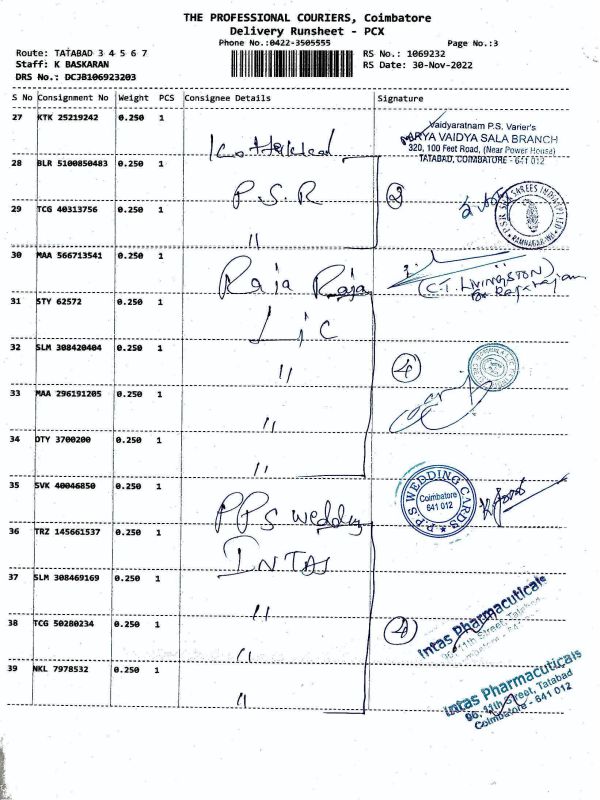 THE PROFESSIONAL COURIERS, Coimbatore
Delivery Runsheet - PCX
Phone No.:0422-3505555
Page No.:3
Route: TATABAD 3 4 5 6 7
RS No.: 1069232
Staff: K BASKARAN
RS Date: 30-Nov-2022
DRS No.: DCJB106923203
S No Consignment No Weight PCS Consignee Details Signature
27 KTK 25219242 0.250 1
Vaidyaratnam P.S. Varier's
ARYA VAIDYA SALA BRANCH
320, 100 Feet Road, (Near Power House)
TATABAD, COIMBATORE - 641 012
28 BLR 5100850483 0.250 1 P.S.R 2
29 TCG 40313756 0.250 1 "
P.S.R SILK SAREES INDIA (P) LTD
RAMNAGAR
30 MAA 566713541 0.250 1 Raja Raja
(C.T. LIVINGSTON)
31 STY 62572 0.250 1 Lic
32 SLM 308420404 0.250 1 " 4
33 MAA 296191205 0.250 1 "
34 OTY 3700200 0.250 1 "
35 SVK 40046850 0.250 1 PPS wedding
P.P.S WEDDING CARDS
Coimbatore
641 012
36 TRZ 145661537 0.250 1 INTAS
37 SLM 308469169 0.250 1 "
38 TCG 50280234 0.250 1 " 4
Intas Pharmaceuticals
96, 11th Street, Tatabad
39 NKL 7978532 0.250 1 "
Intas Pharmaceuticals
96, 11th Street, Tatabad
Coimbatore - 641 012